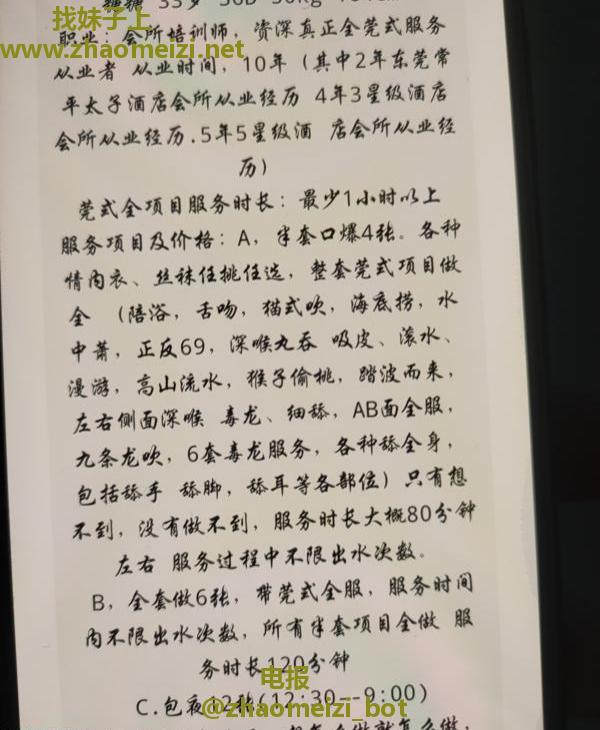 糖糖 33岁 36D 50kg
找妹子上
职业：会所培训师，资深真正全莞式服务
www.zhaomeizi.net
从业者 从业时间，10年（其中2年东莞常
平太子酒店会所从业经历 4年3星级酒店
会所从业经历.5年5星级酒 店会所从业经
历）
莞式全项目服务时长：最少1小时以上
服务项目及价格：A，半套口爆4张。各种
情内衣、丝袜任挑任选，整套莞式项目做
全 （陪浴，舌吻，猫式吹，海底捞，水
中萧，正反69，深喉丸吞 吸皮、滚水、
漫游，高山流水，猴子偷桃，踏波而来，
左右侧面深喉 毒龙、细舔，AB面全服，
九条龙吹，6套毒龙服务，各种舔全身，
包括舔手 舔脚，舔耳等各部位）只有想
不到，没有做不到，服务时长大概80分钟
左右 服务过程中不限出水次数。
B，全套做6张，带莞式全服，服务时间
内不限出水次数，所有半套项目全做 服
务时长120分钟
电报
C.包夜12张(12:30--9:00)
@zhaomeizi_bot